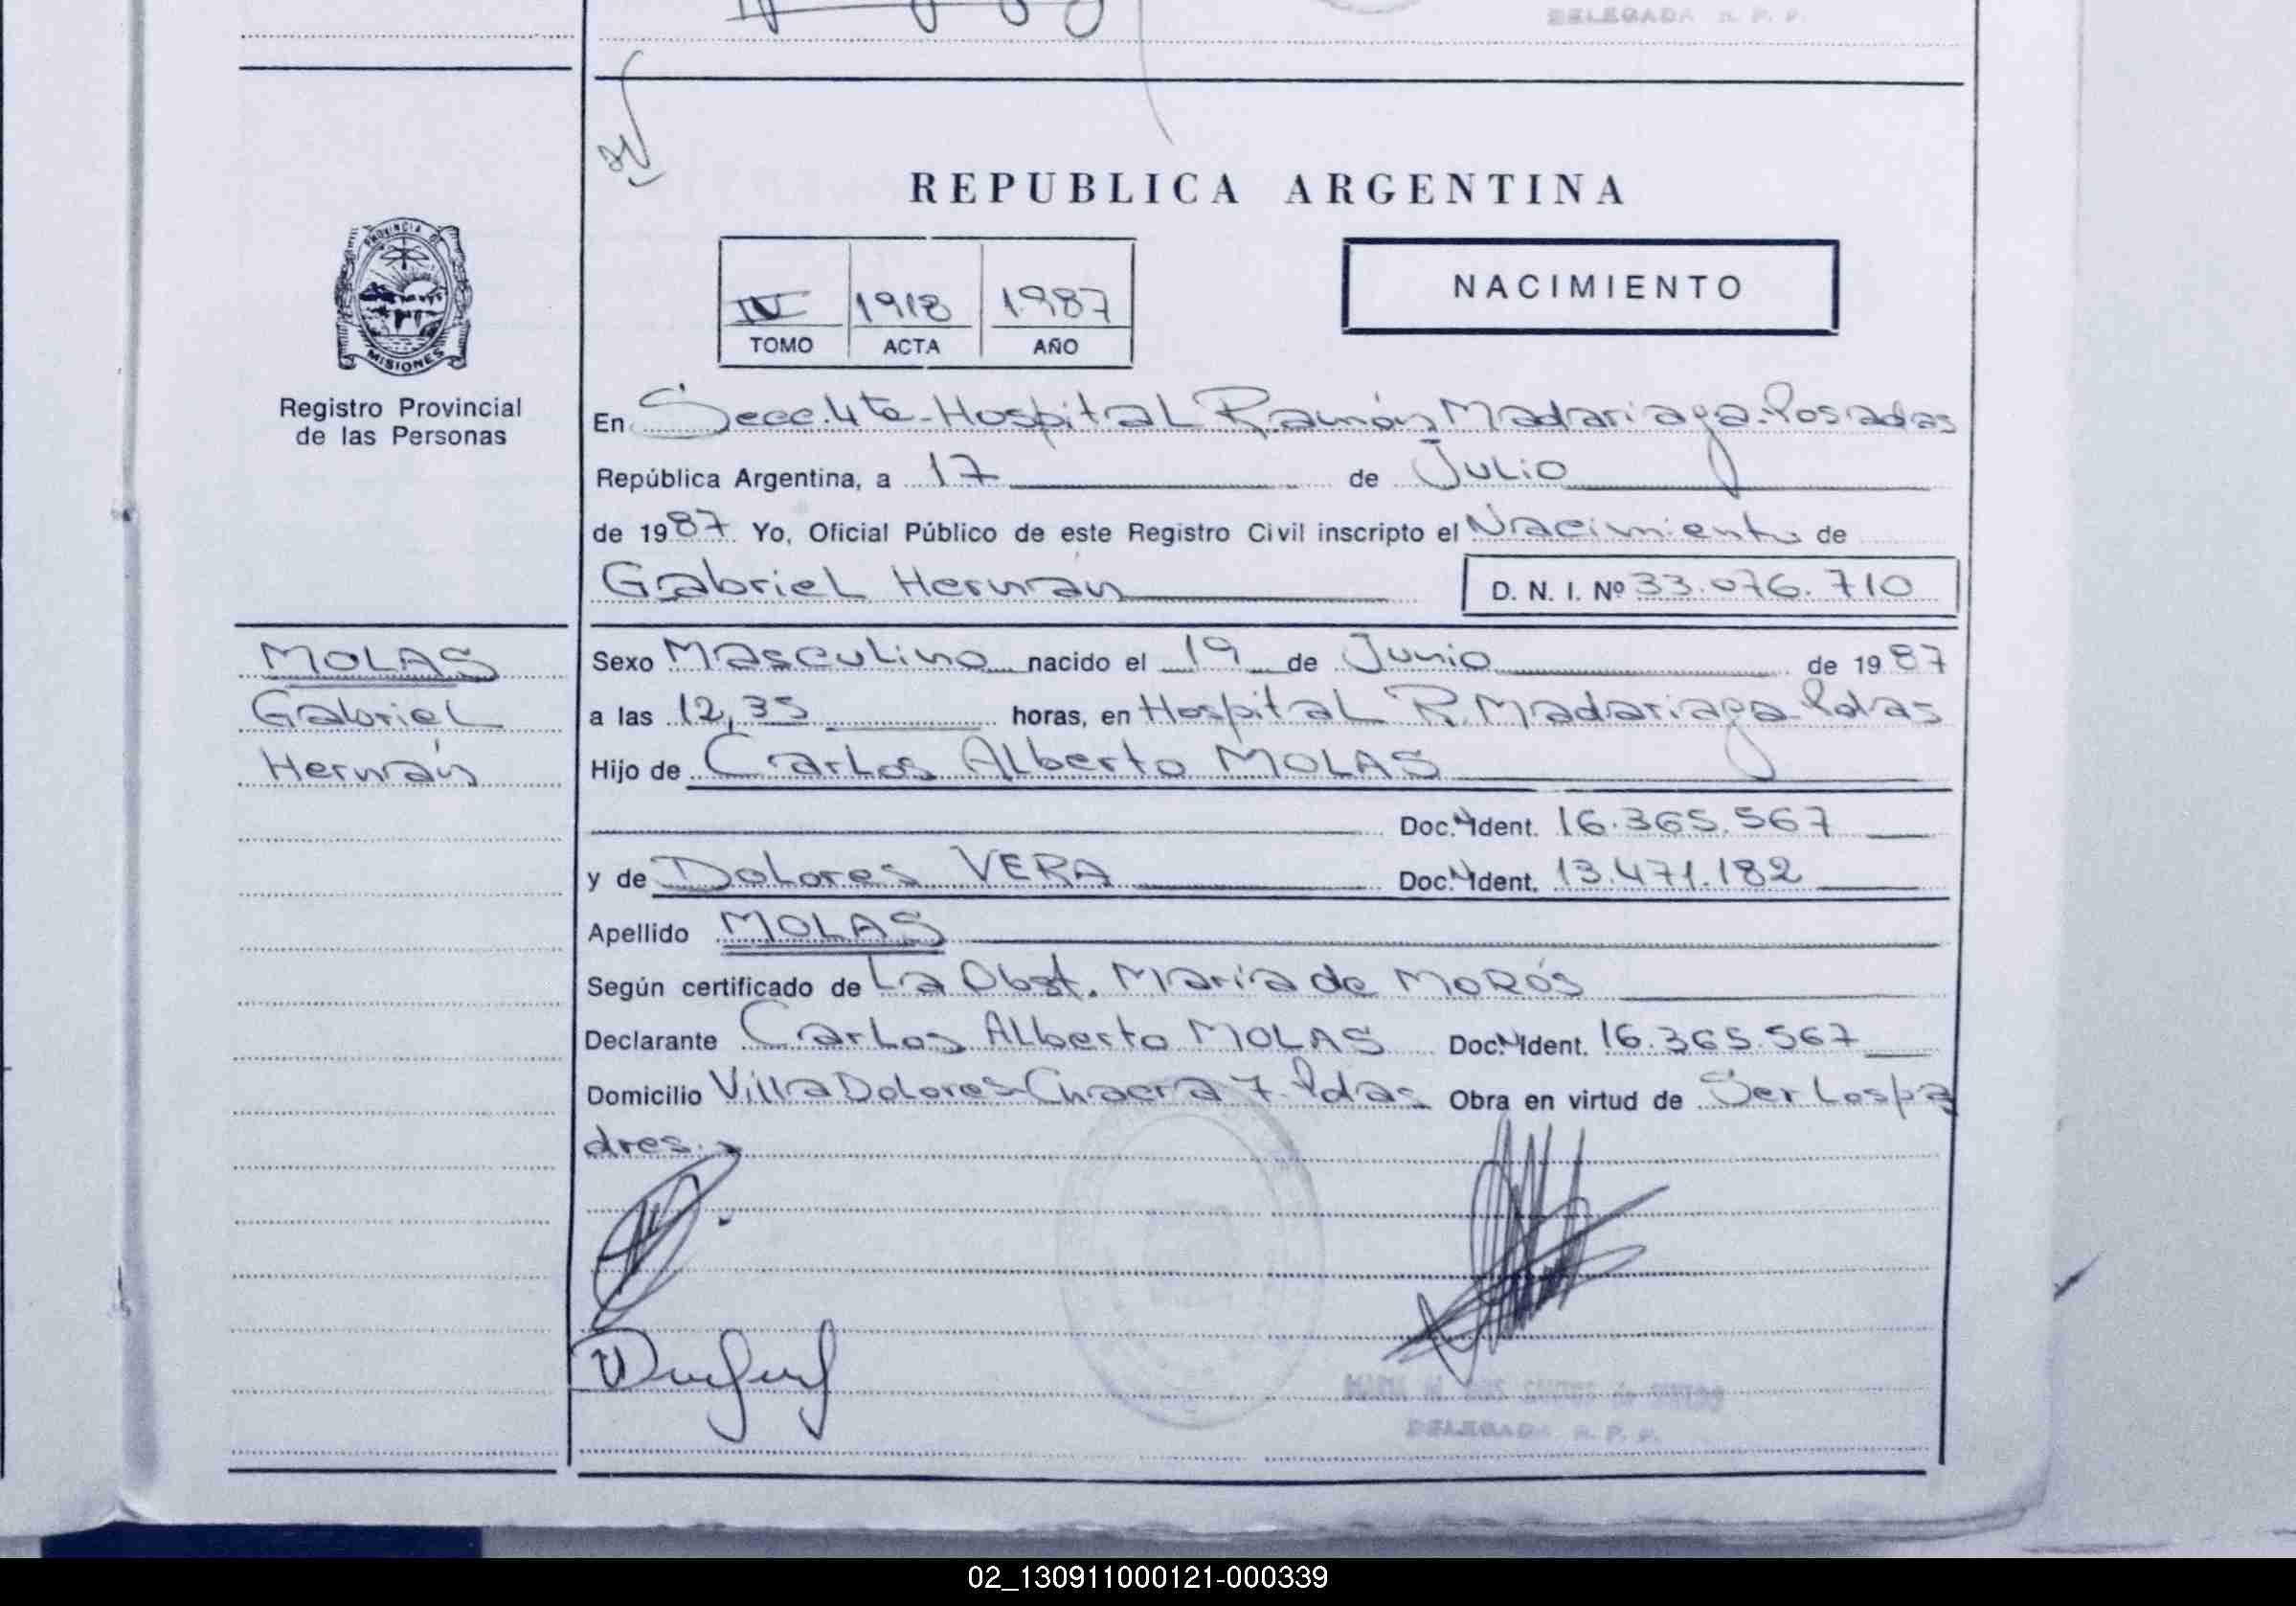 DELEGADA R. P. P.
REPUBLICA ARGENTINA
PROVINCIA DE
MISIONES
Registro Provincial
de las Personas
IV 1918 1987
TOMO ACTA AÑO
NACIMIENTO
En Secc. 4ta - Hospital Ramón Madariaga - Posadas
República Argentina, a 17 de Julio
de 1987 Yo, Oficial Público de este Registro Civil inscripto el Nacimiento de
Gabriel Hernan D. N. I. Nº 33.076.710
MOLAS
Gabriel
Hernán
Sexo Masculino nacido el 19 de Junio de 1987
a las 12,35 horas, en Hospital R. Madariaga Pdas
Hijo de Carlos Alberto MOLAS
Doc. N Ident. 16.365.567
y de Dolores VERA Doc. N Ident. 13.471.182
Apellido MOLAS
Según certificado de La Obst. María de MORÓS
Declarante Carlos Alberto MOLAS Doc. N Ident. 16.365.567
Domicilio Villa Dolores - Chacra 7 - Pdas Obra en virtud de Ser Los pa
dres.
DELEGADA R. P. P.
02_130911000121-000339